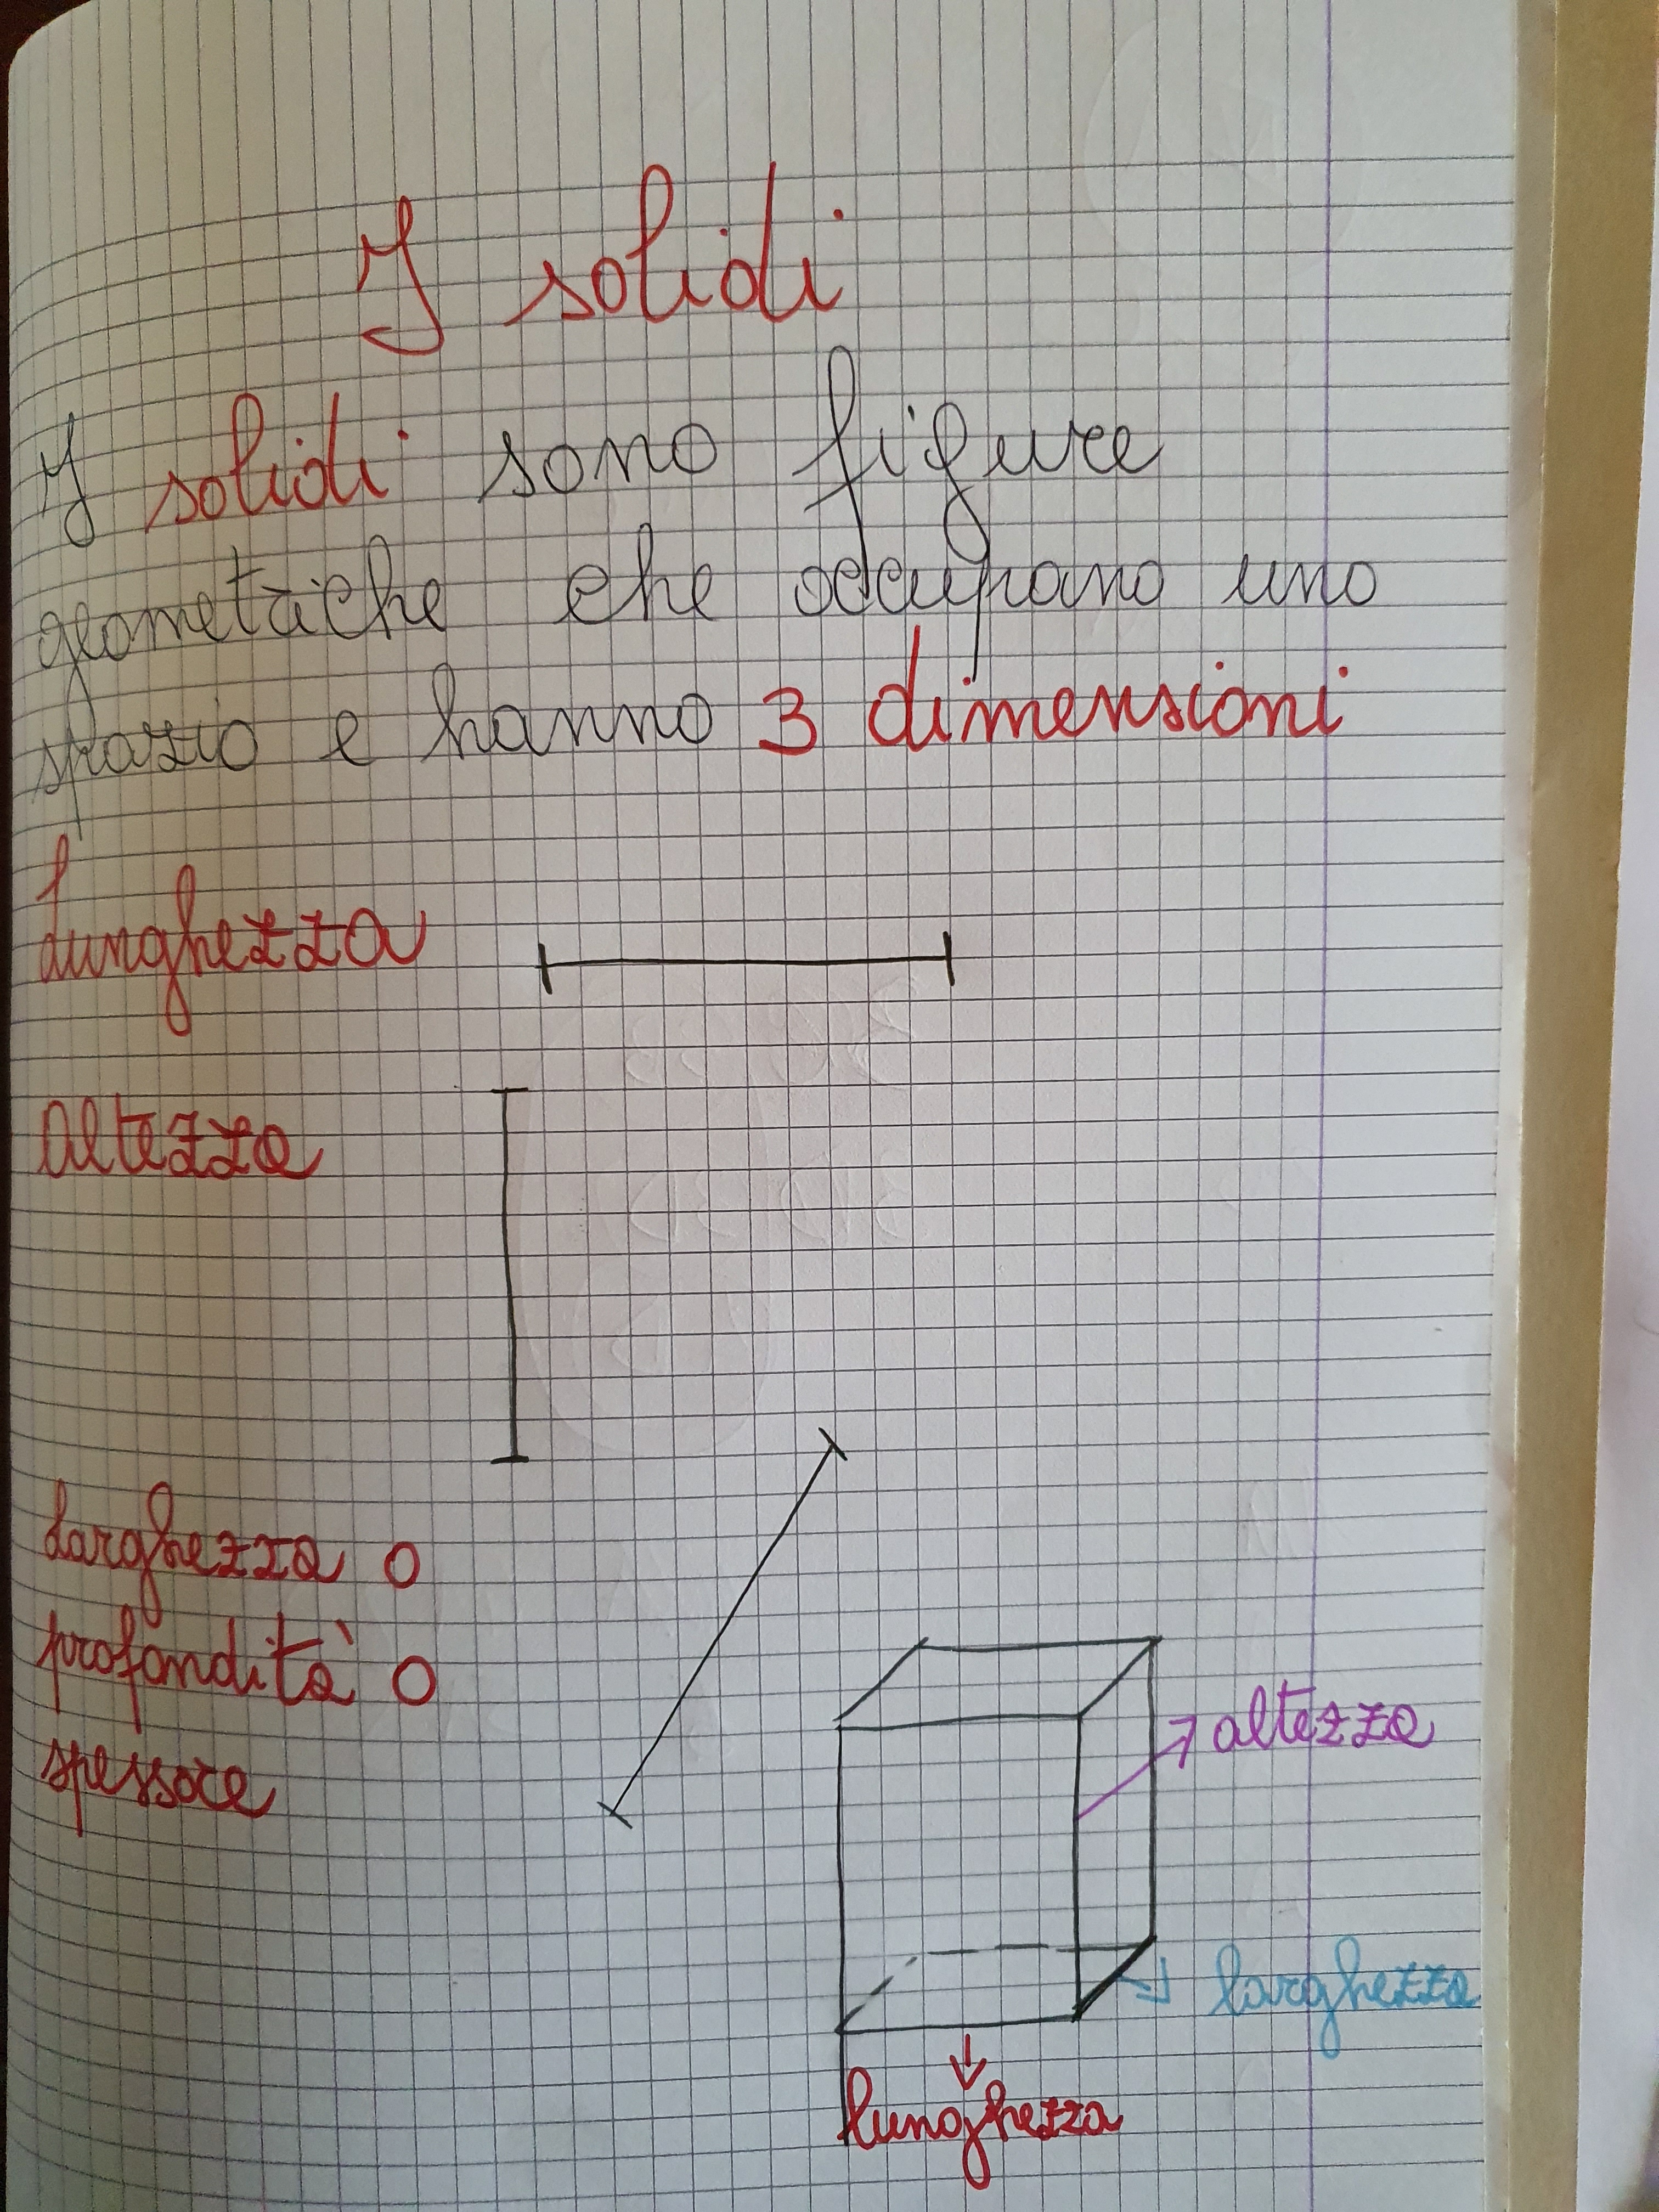 I solidi
I solidi sono figure
geometriche che occupano uno
spazio e hanno 3 dimensioni
lunghezza
altezza
larghezza o
profondità o
spessore
altezza
larghezza
lunghezza